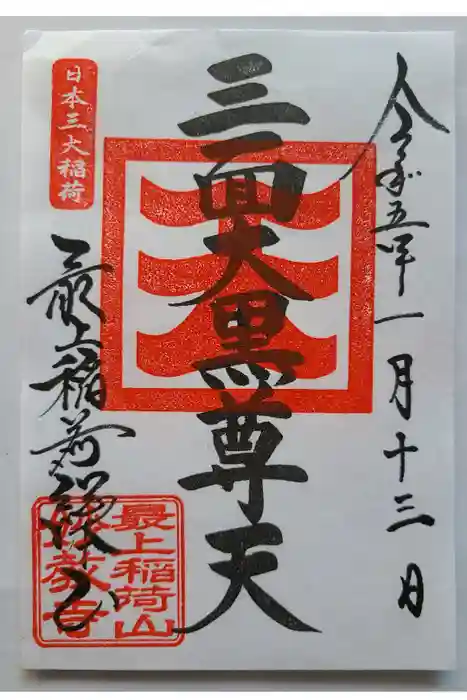 令和五年一月十三日
三面大黒尊天
日本三大稲荷
最上稲荷謹書
最上稲荷山
妙教寺